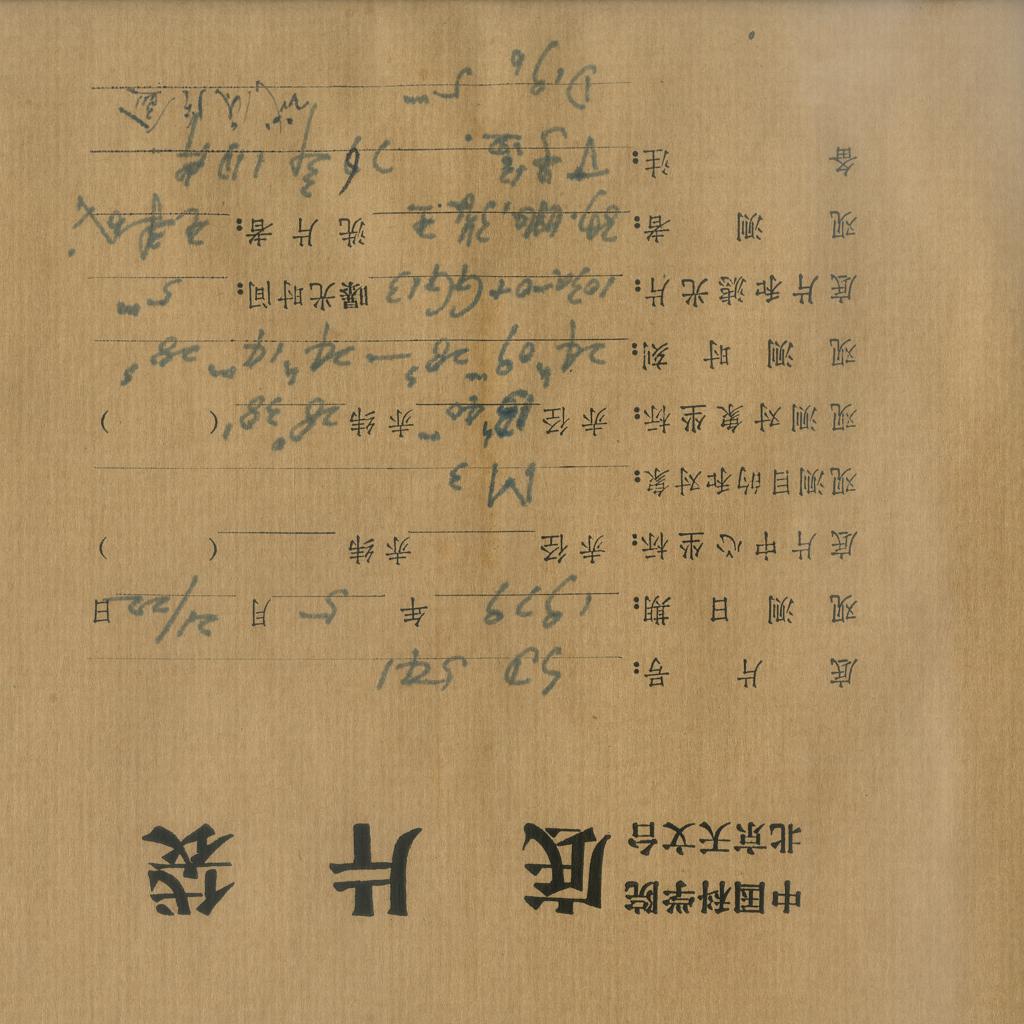 中国科学院
北京天文台 底片袋
底片号: SD 541
观测日期: 1979 年 5 月 21/22 日
底片中心坐标: 赤径 赤纬 ( )
观测目的和对象: M3
观测对象坐标: 赤径 13h40m 赤纬 28°38' ( )
观测时刻: 24h09m28s — 24h14m28s
底片和滤光片: 103a-0+GG13 曝光时间: 5m
观测者: 洗片者:
备注:
D196 5m